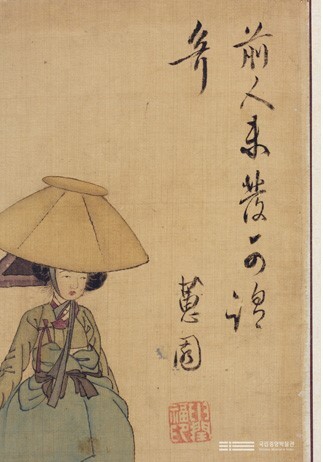 前人未發可謂
奇
蕙園
국립중앙박물관